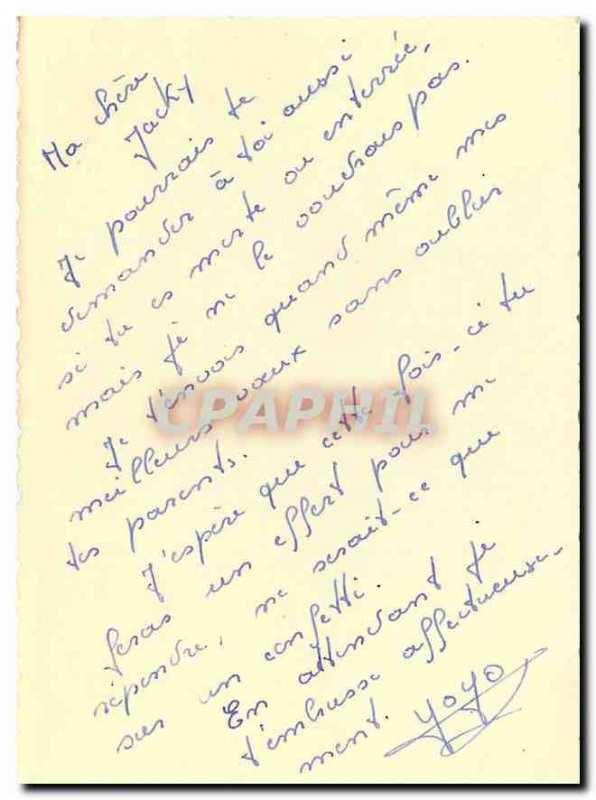 Ma chère
Jacky
Je pourrais te
demander à toi aussi
si tu es morte ou enterrée,
mais je ne le voudrais pas.
Je t'envois quand même mes
meilleurs vœux sans oublier
tes parents.
J'espère que cette fois-ci tu
feras un effort pour me
répondre, ne serait-ce que
sur un confetti.
En attendant je
t'embrasse affectueuse-
ment. yoyo
CPAPHIL